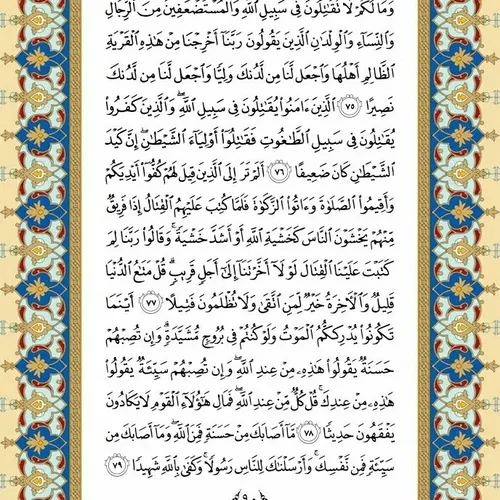 وَمَا لَكُمْ لَا تُقَٰتِلُونَ فِى سَبِيلِ ٱللَّهِ وَٱلْمُسْتَضْعَفِينَ مِنَ ٱلرِّجَالِ
وَٱلنِّسَآءِ وَٱلْوِلْدَٰنِ ٱلَّذِينَ يَقُولُونَ رَبَّنَآ أَخْرِجْنَا مِنْ هَٰذِهِ ٱلْقَرْيَةِ
ٱلظَّالِمِ أَهْلُهَا وَٱجْعَل لَّنَا مِن لَّدُنكَ وَلِيًّا وَٱجْعَل لَّنَا مِن لَّدُنكَ
نَصِيرًا ٧٥ ٱلَّذِينَ ءَامَنُوا۟ يُقَٰتِلُونَ فِى سَبِيلِ ٱللَّهِ ۖ وَٱلَّذِينَ كَفَرُوا۟
يُقَٰتِلُونَ فِى سَبِيلِ ٱلطَّٰغُوتِ فَقَٰتِلُوٓا۟ أَوْلِيَآءَ ٱلشَّيْطَٰنِ ۖ إِنَّ كَيْدَ
ٱلشَّيْطَٰنِ كَانَ ضَعِيفًا ٧٦ أَلَمْ تَرَ إِلَى ٱلَّذِينَ قِيلَ لَهُمْ كُفُّوٓا۟ أَيْدِيَكُمْ
وَأَقِيمُوا۟ ٱلصَّلَوٰةَ وَءَاتُوا۟ ٱلزَّكَوٰةَ فَلَمَّا كُتِبَ عَلَيْهِمُ ٱلْقِتَالُ إِذَا فَرِيقٌ
مِّنْهُمْ يَخْشَوْنَ ٱلنَّاسَ كَخَشْيَةِ ٱللَّهِ أَوْ أَشَدَّ خَشْيَةً ۚ وَقَالُوا۟ رَبَّنَا لِمَ
كَتَبْتَ عَلَيْنَا ٱلْقِتَالَ لَوْلَآ أَخَّرْتَنَآ إِلَىٰٓ أَجَلٍ قَرِيبٍ ۗ قُلْ مَتَٰعُ ٱلدُّنْيَا
قَلِيلٌ وَٱلْءَاخِرَةُ خَيْرٌ لِّمَنِ ٱتَّقَىٰ وَلَا تُظْلَمُونَ فَتِيلًا ٧٧ أَيْنَمَا
تَكُونُوا۟ يُدْرِككُّمُ ٱلْمَوْتُ وَلَوْ كُنتُمْ فِى بُرُوجٍ مُّشَيَّدَةٍ ۗ وَإِن تُصِبْهُمْ
حَسَنَةٌ يَقُولُوا۟ هَٰذِهِۦ مِنْ عِندِ ٱللَّهِ ۖ وَإِن تُصِبْهُمْ سَيِّئَةٌ يَقُولُوا۟
هَٰذِهِۦ مِنْ عِندِكَ ۚ قُلْ كُلٌّ مِّنْ عِندِ ٱللَّهِ ۖ فَمَالِ هَٰٓؤُلَآءِ ٱلْقَوْمِ لَا يَكَادُونَ
يَفْقَهُونَ حَدِيثًا ٧٨ مَّآ أَصَابَكَ مِنْ حَسَنَةٍ فَمِنَ ٱللَّهِ ۖ وَمَآ أَصَابَكَ مِن
سَيِّئَةٍ فَمِن نَّفْسِكَ ۚ وَأَرْسَلْنَٰكَ لِلنَّاسِ رَسُولًا ۚ وَكَفَىٰ بِٱللَّهِ شَهِيدًا ٧٩
٩٠